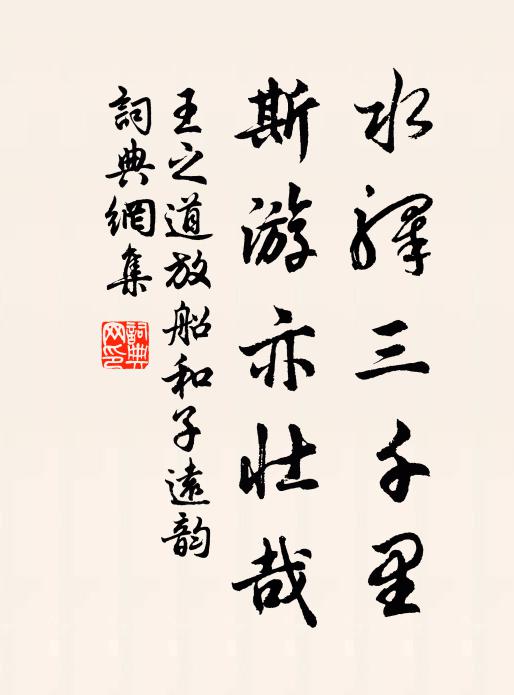 水驛三千里
斯游亦壯哉
王之道放船和子遠韵
詞典網集
詞典網印